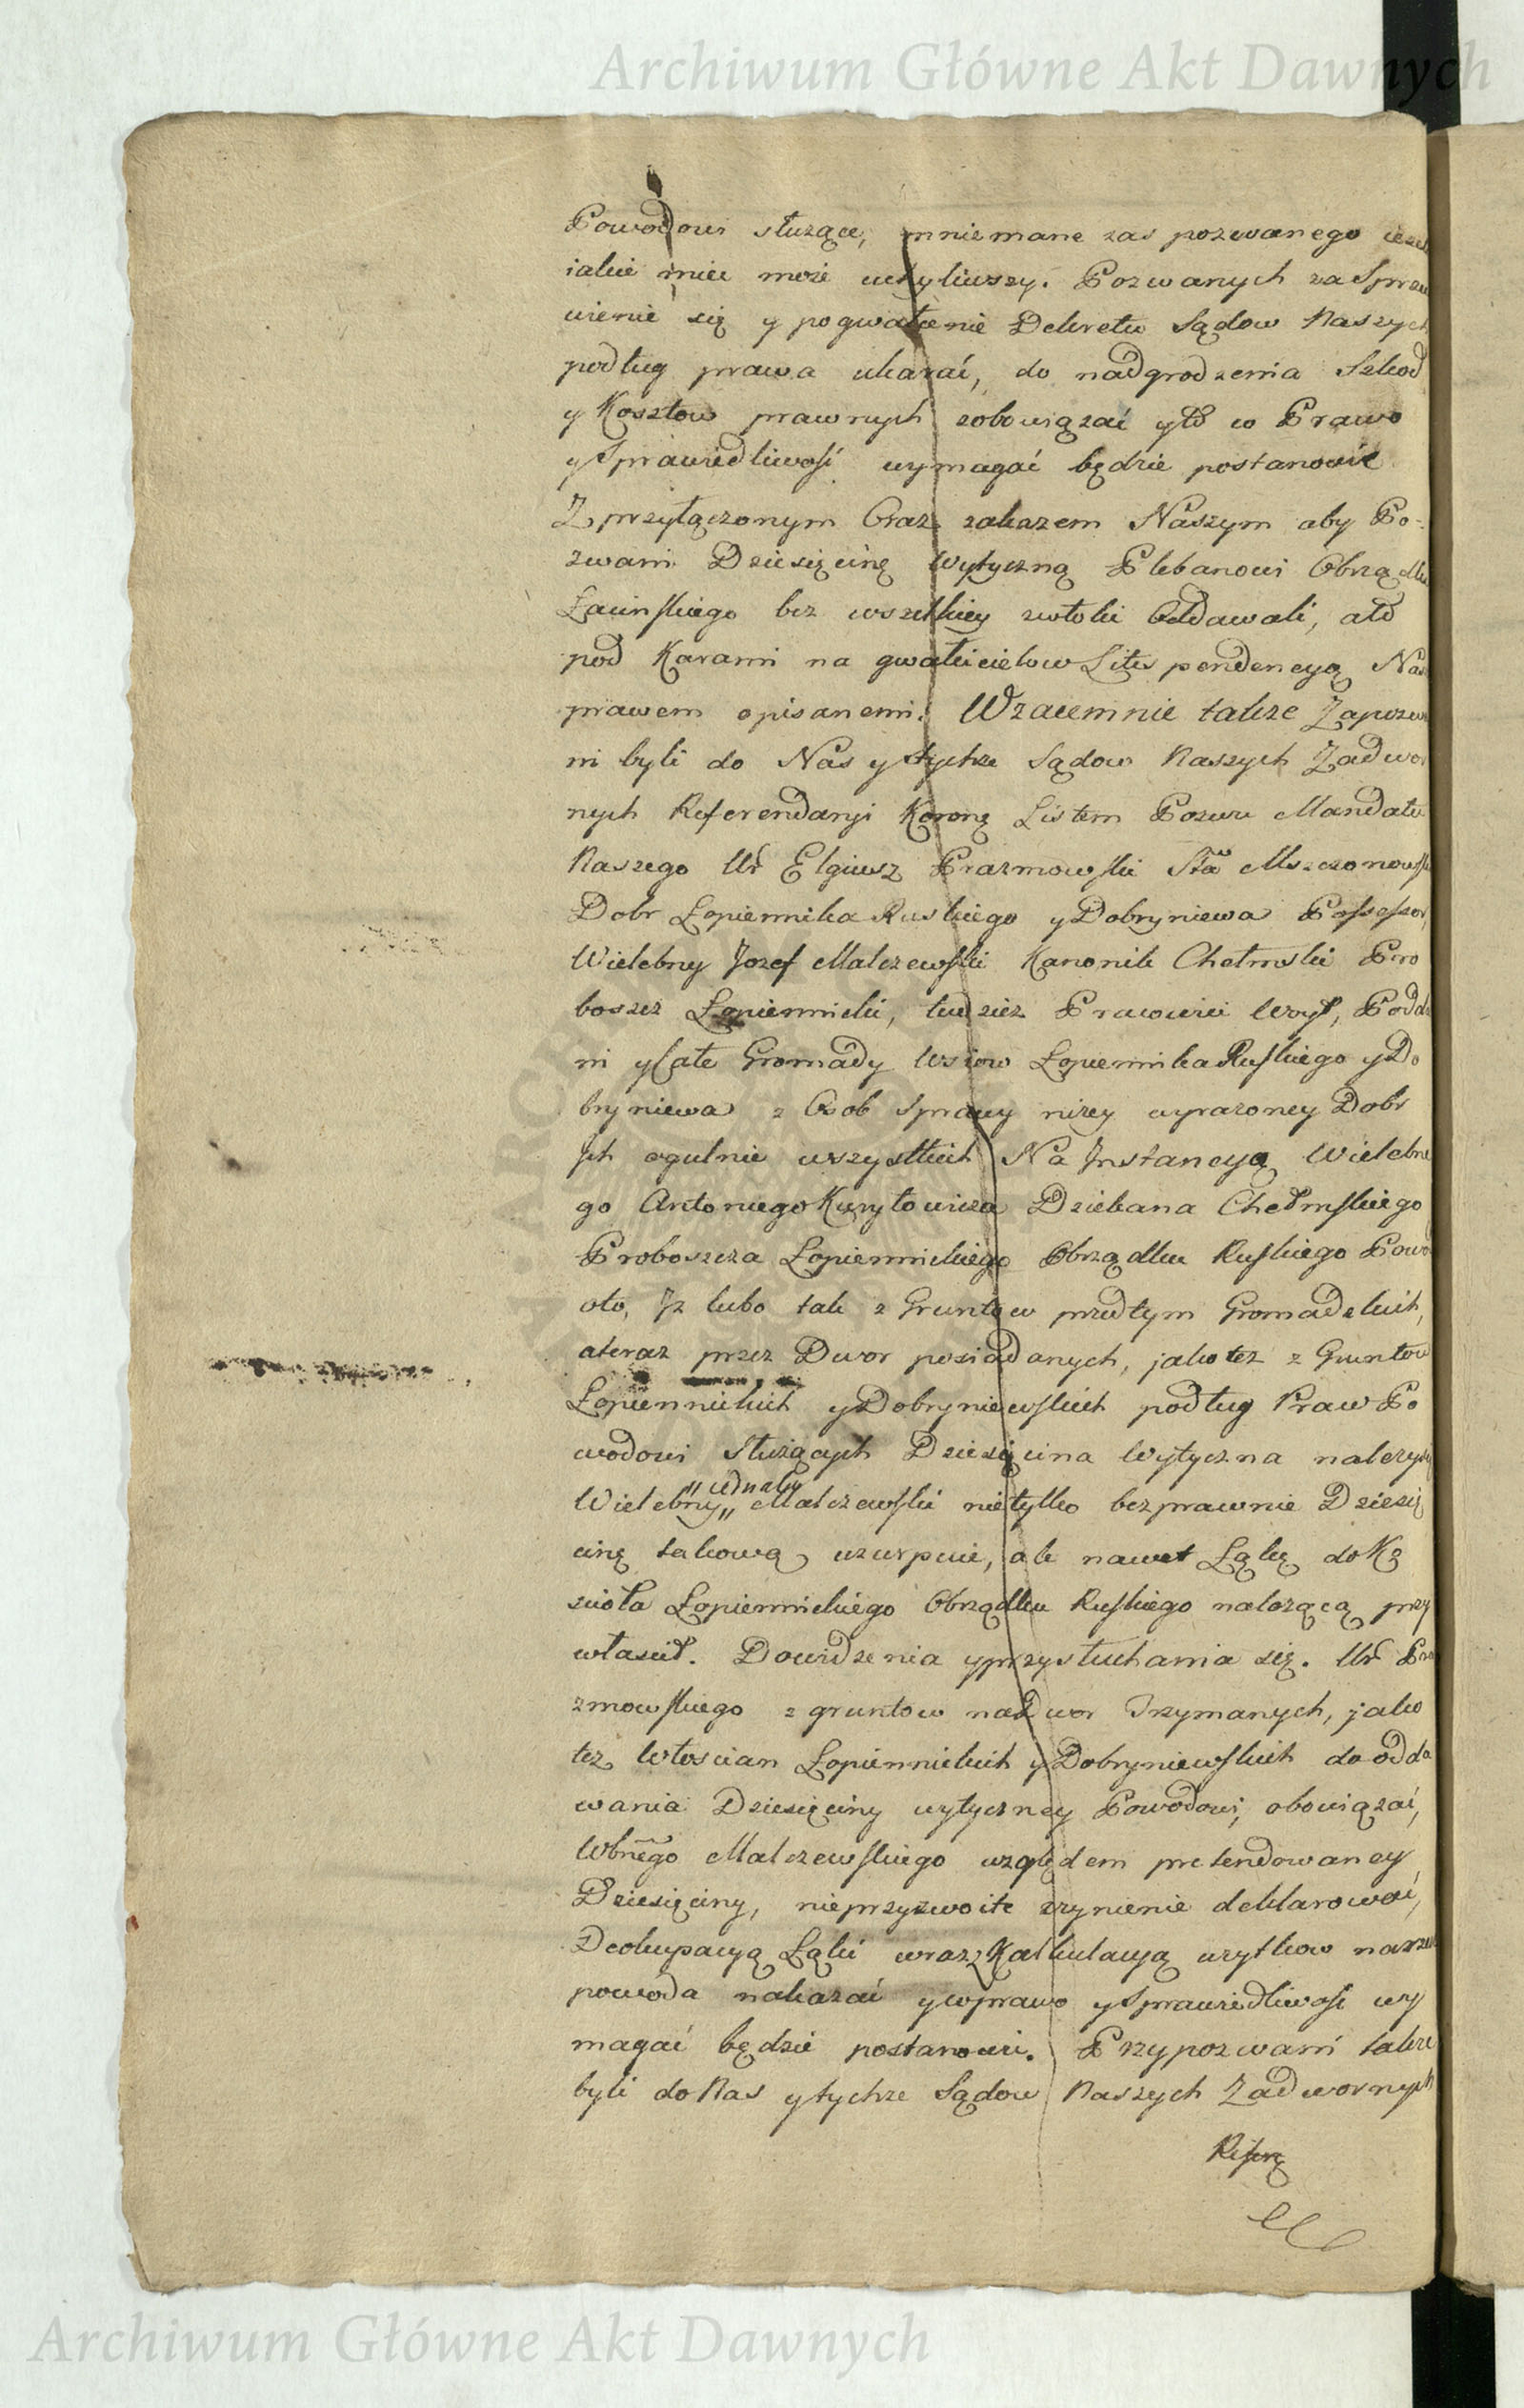 Archiwum Główne Akt Dawnych
Powodowi służące, mniemane zas pozwanego
iakie miec może uchyliwszy. Pozwanych za Sprze
uienie się y pogwałcenie Dekretu Sądow Naszych
podług prawa ukarać, do nadgrodzenia Szkod
y Kosztow prawnych zobowiązać yto co Prawo
y Sprawiedliwość wymagać będzie postanowić
Z przyłączonym Oraz zakazem Naszym aby Po-
zwani Dziesięcinę Wytyczną Plebanowi Obrządku
Łacinskiego bez wszelkiey zwłoki Oddawali, ato
pod Karami na gwałcicielow Litis pendencyą Na
prawem opisanemi. Wzaiemnie takze Zapozwa
ni byli do Nas y tychze Sądow Naszych Zadwor
nych Referendaryi Koronę Listem Pozwu Mandatu
Naszego Ur Elgiusz Prazmowski Stta Mszczonowsk
Dobr Łopiennika Ruskiego y Dobryniewa Possessor,
Wielebny Jozef Malczewski Kanonik Chełmski Pro
boszcz Łopiennicki, tudziez Pracowici Woyt, Podda
ni y Całe Gromady Wsiow Łopiennika Ruskiego y Do
bryniewa z Osob Sprawy nizey wyrazoney Dobr
Jch ogulnie wszystkich Na Jnstancyą Wielebne
go Antoniego Kuryłowicza Dziekana Chełmskiego
Proboszcza Łopiennickiego Obrządku Ruskiego Powod
oto, Jz lubo tak z Gruntow przedtym Gromadzkich,
ateraz przez Dwor posiadanych, jako tez z Gruntow
Łopiennickich y Dobryniewskich podług Praw Po
wodowi Służących Dziesięcina Wytyczna nalezy,
„iednak„
Wielebny„ Malczewski nietylko bezprawnie Dziesię
cinę takową uzurpuie, ale nawet Łąkę do Ko
scioła Łopiennickiego Obrządku Ruskiego nalezącą przy
włascił. Do widzenia y przysłuchania się. Ur Pra
zmowskiego z gruntow na Dwor Trzymanych, jako
tez Włoscian Łopiennickich y Dobryniewskich do odda
wania Dziesięciny wytyczney Powodowi, obowiązać,
Wbnego Malczewskiego względem pretendowaney
Dziesięciny, nieprzyzwoite czynienie deklarować,
Deokupacyą Łąki wraz z Kalkulacyą uzytkow na rzecz
powoda nakazać y co prawo y Sprawiedliwosc wy
magać będzie postanowić. Przypozwani takze
byli do Nas y tychze Sądow Naszych Zadwornych
Referę
Archiwum Główne Akt Dawnych